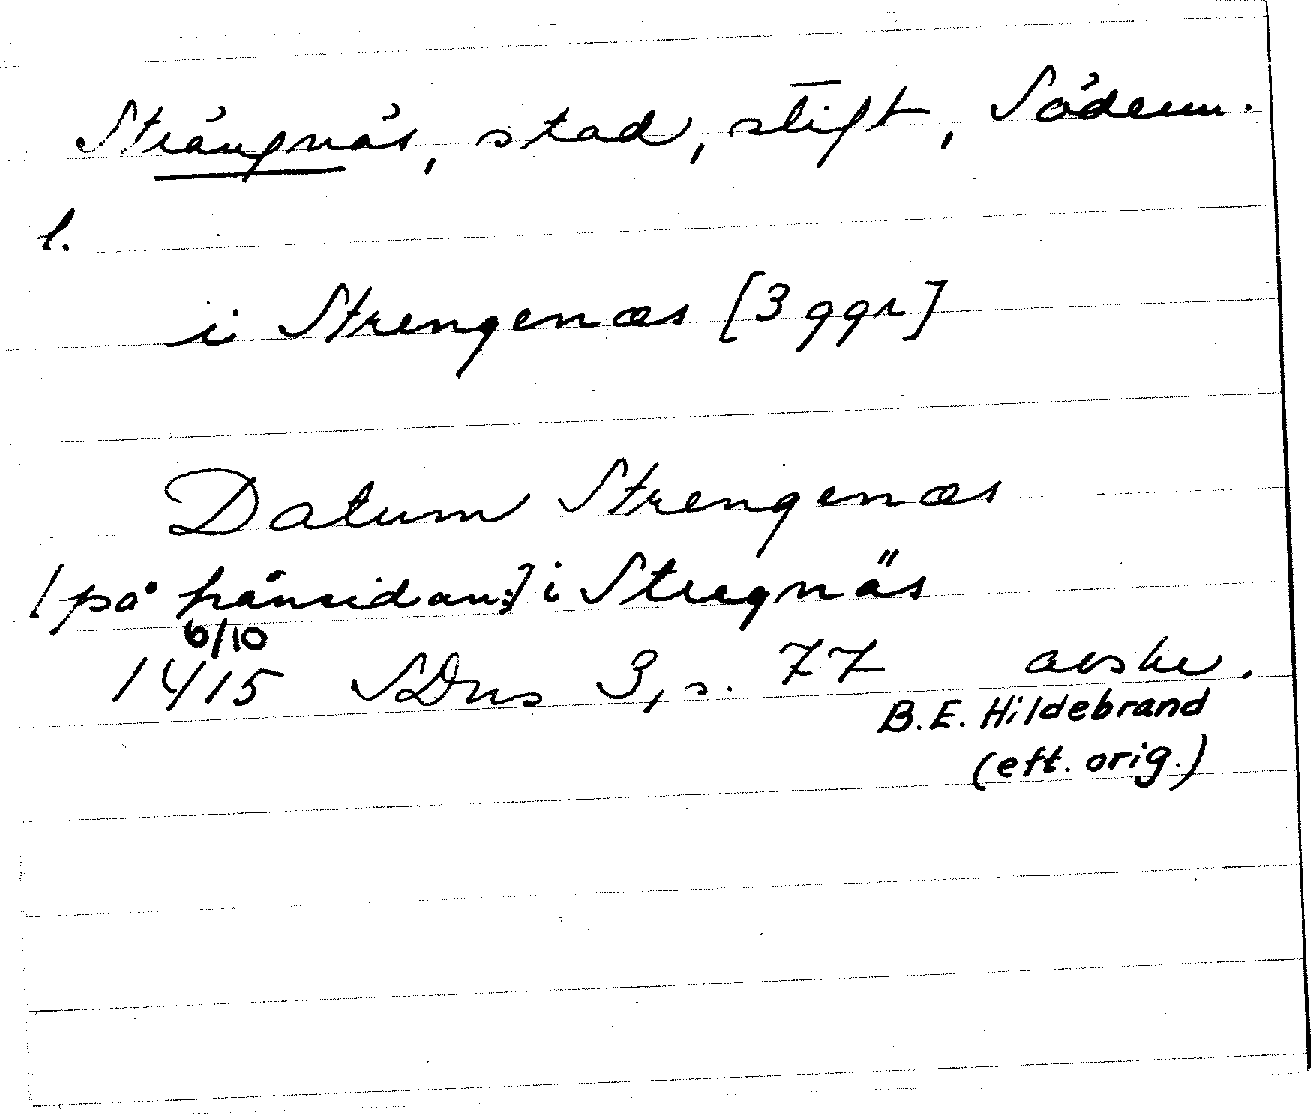 Strängnäs, stad, stift, Söderm.
l.
i Strengenæs [3 ggr]
Datum Strengenæs
[på frånsidan:] i Stregnäs
6/10
1415 SDns 3, s. 77 avskr.
B.E. Hildebrand
(eft. orig.)